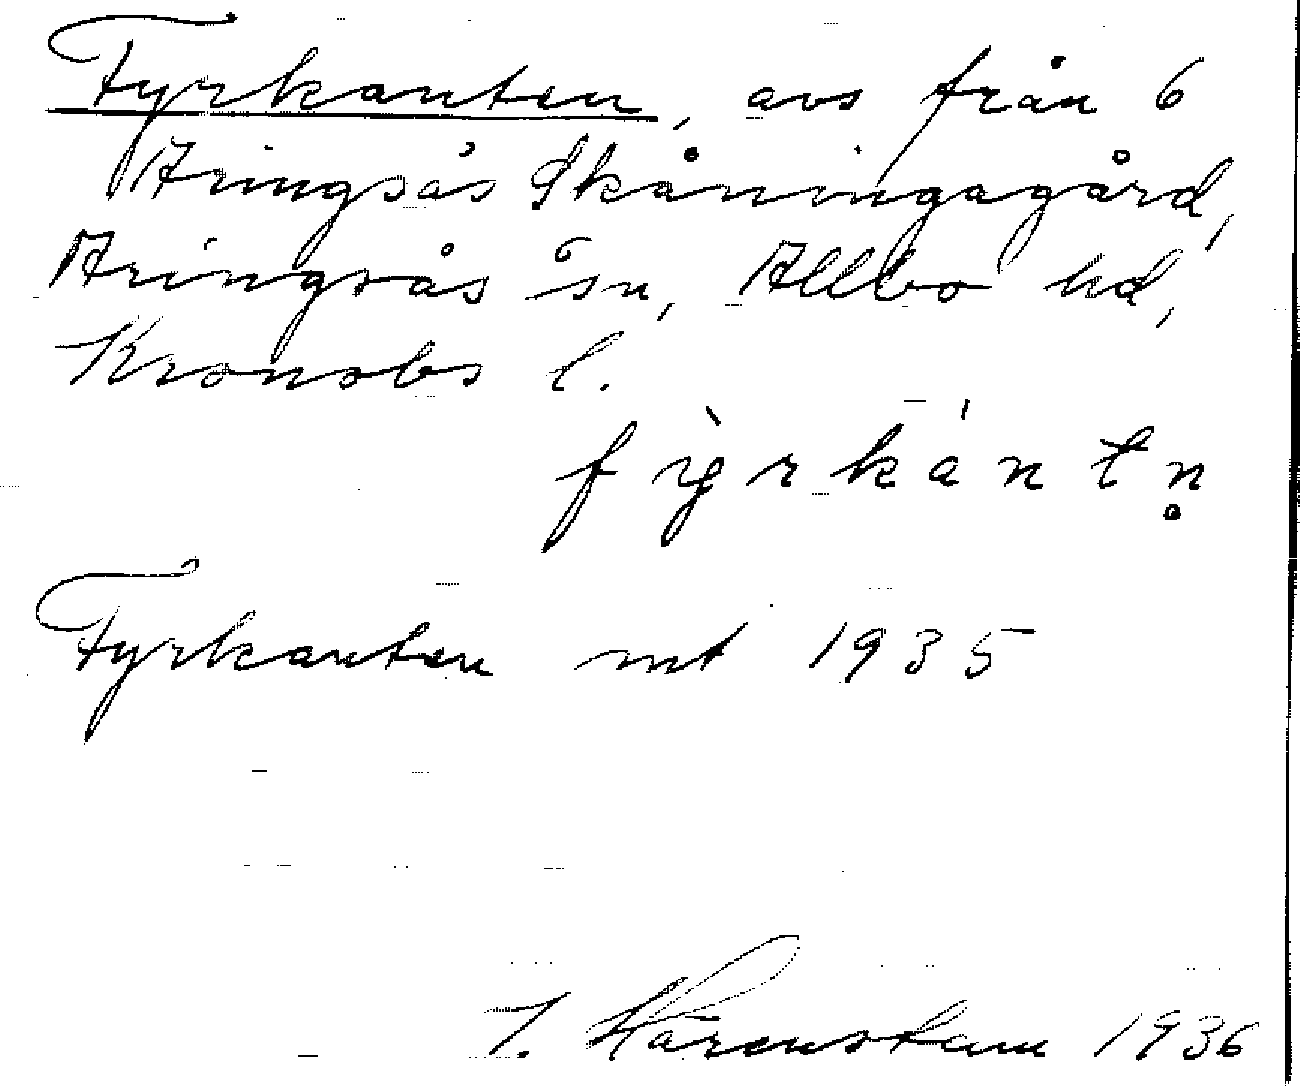 Fyrkanten, avs från 6
Aringsås Skåningagård,
Aringsås sn, Allbo hd,
Kronobs l.
fỳrkántn̥
Fyrkanten mt 1935
J. Härenstam 1936